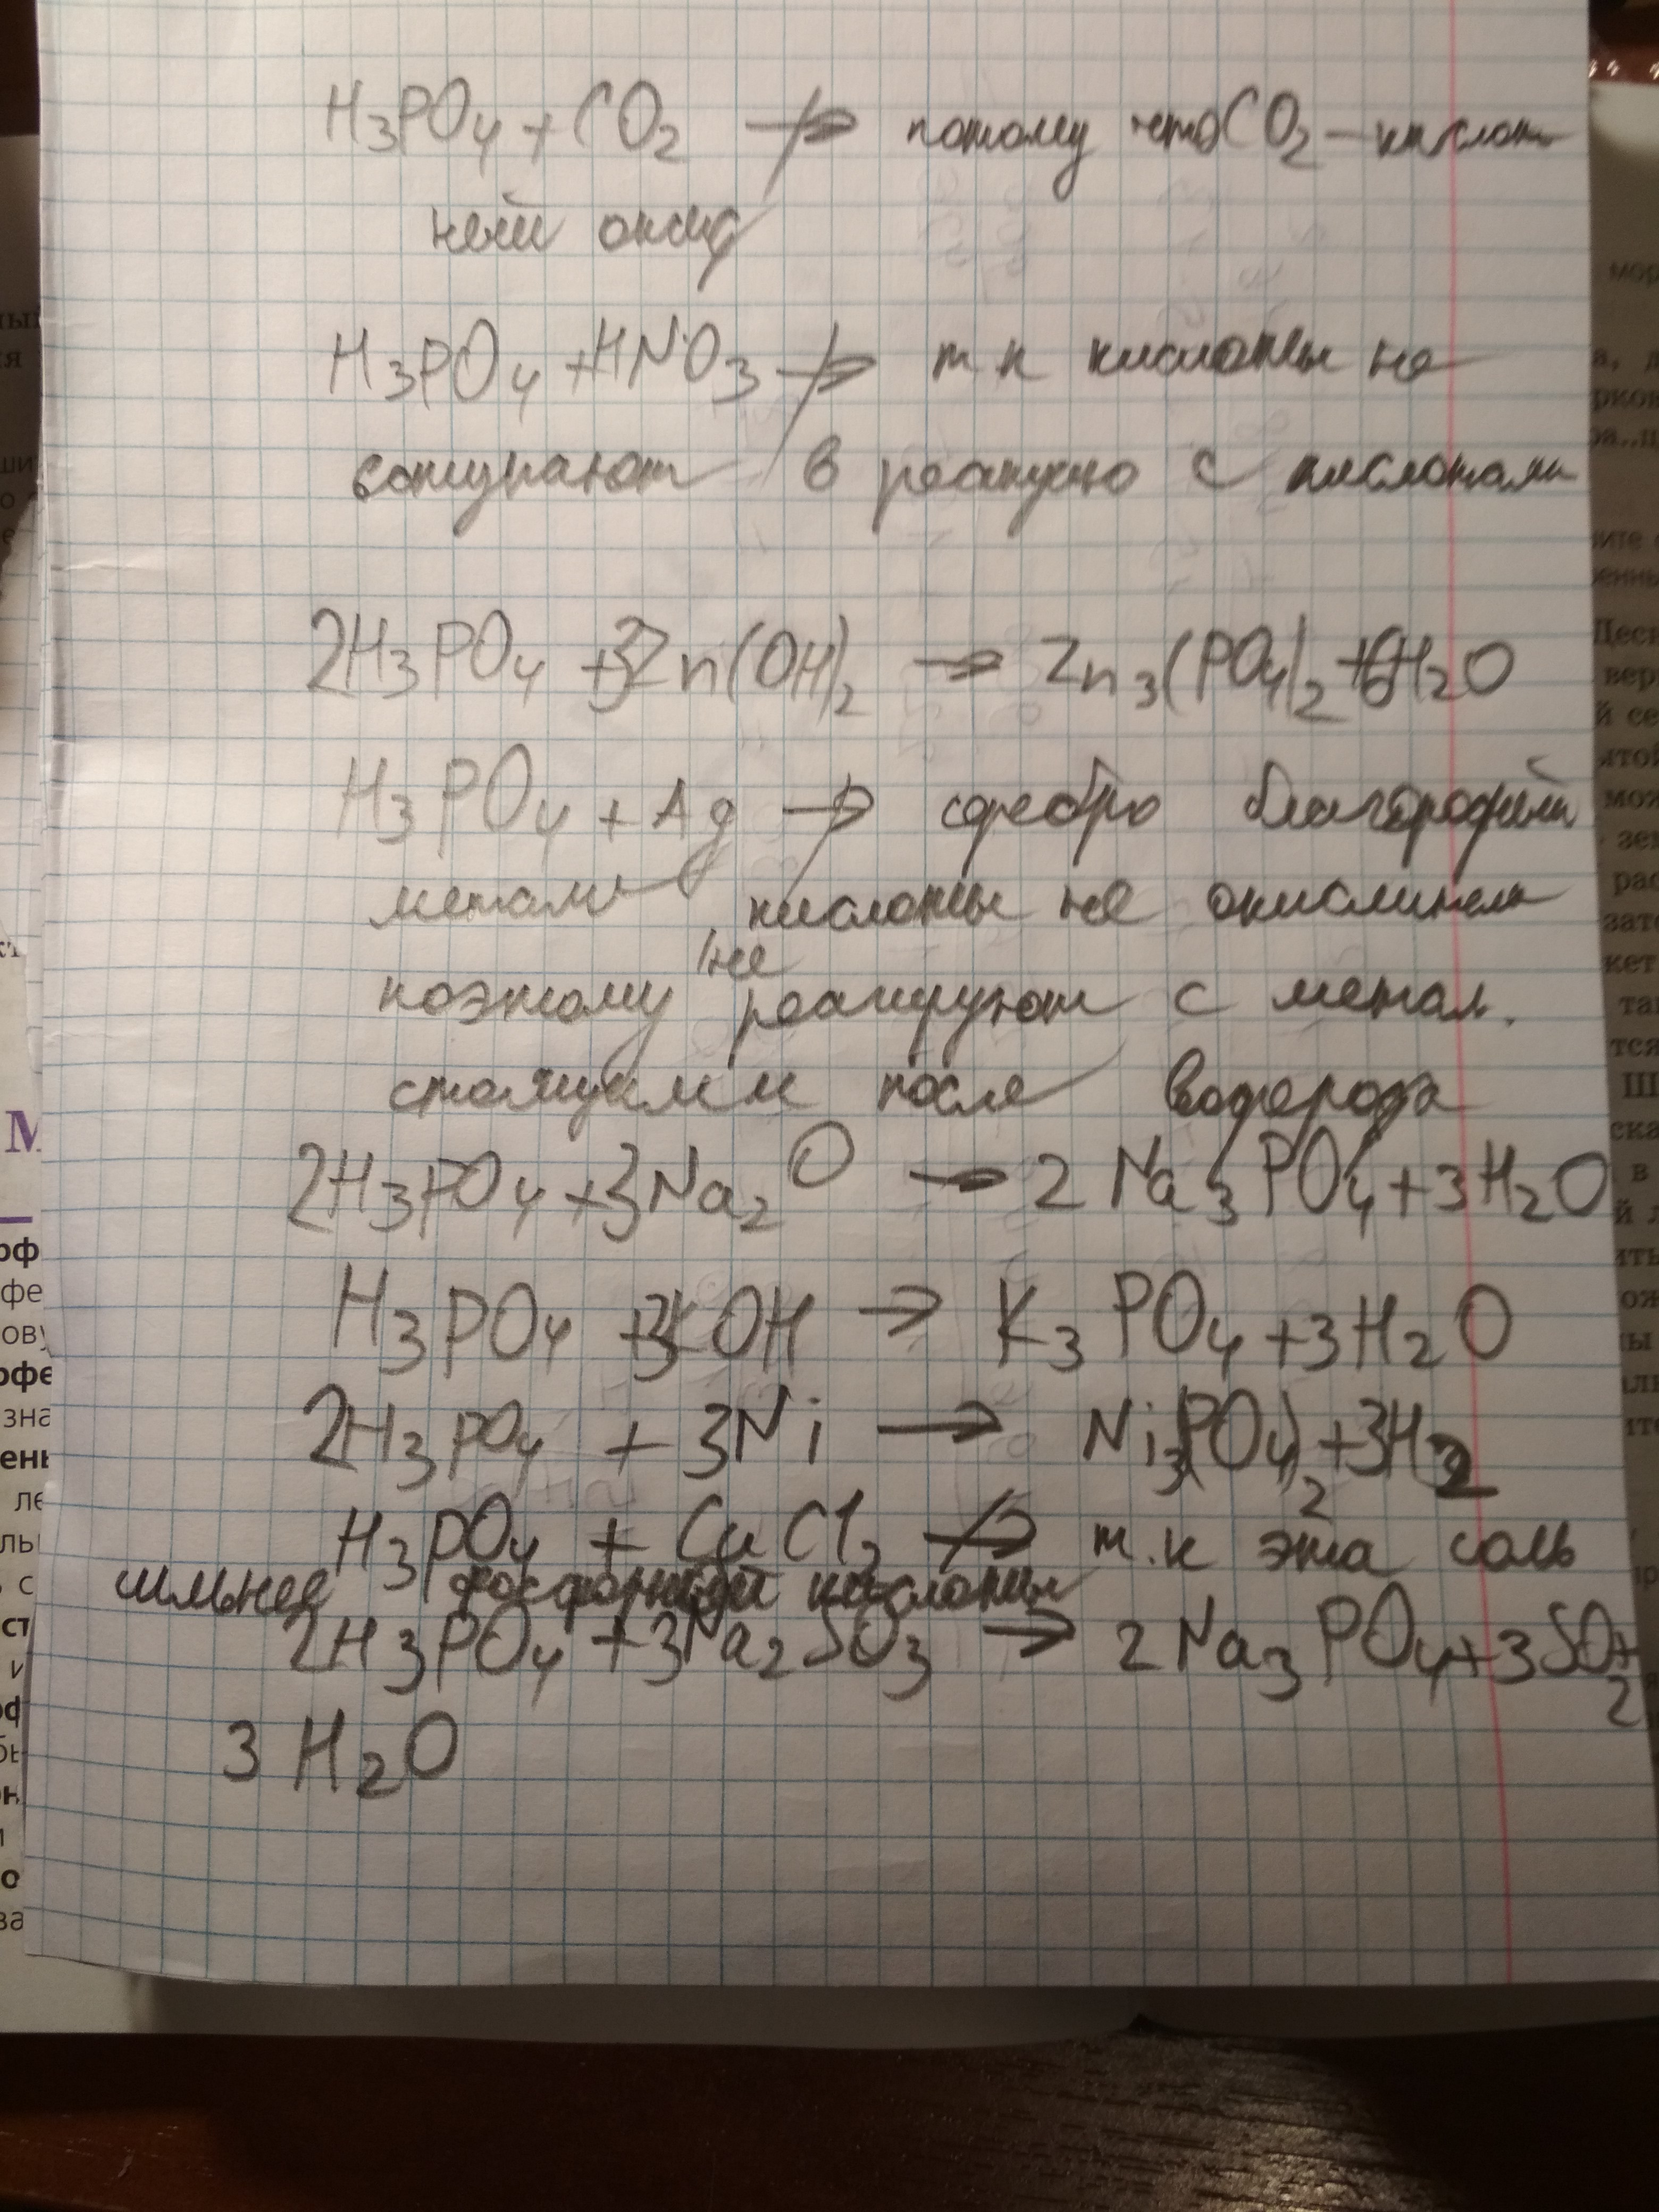 H₃PO₄ + CO₂ ↛ потому что CO₂ – кислот
ный оксид
H₃PO₄ + HNO₃ ↛ т к кислоты не
вступают в реакцию с кислотами
2H₃PO₄ + 3Zn(OH)₂ → Zn₃(PO₄)₂ + 6H₂O
H₃PO₄ + Ag ↛ серебро благородный
металл кислоты не окислители
поэтому не реагируют с метал.
стоящими после водорода
2H₃PO₄ + 3Na₂O → 2Na₃PO₄ + 3H₂O
H₃PO₄ + 3KOH → K₃PO₄ + 3H₂O
2H₃PO₄ + 3Ni → Ni₃(PO₄)₂ + 3H₂
H₃PO₄ + CuCl₂ ↛ т.к эта соль
сильнее фосфорной кислоты
2H₃PO₄ + 3Na₂SO₃ → 2Na₃PO₄ + 3SO₂ +
3H₂O